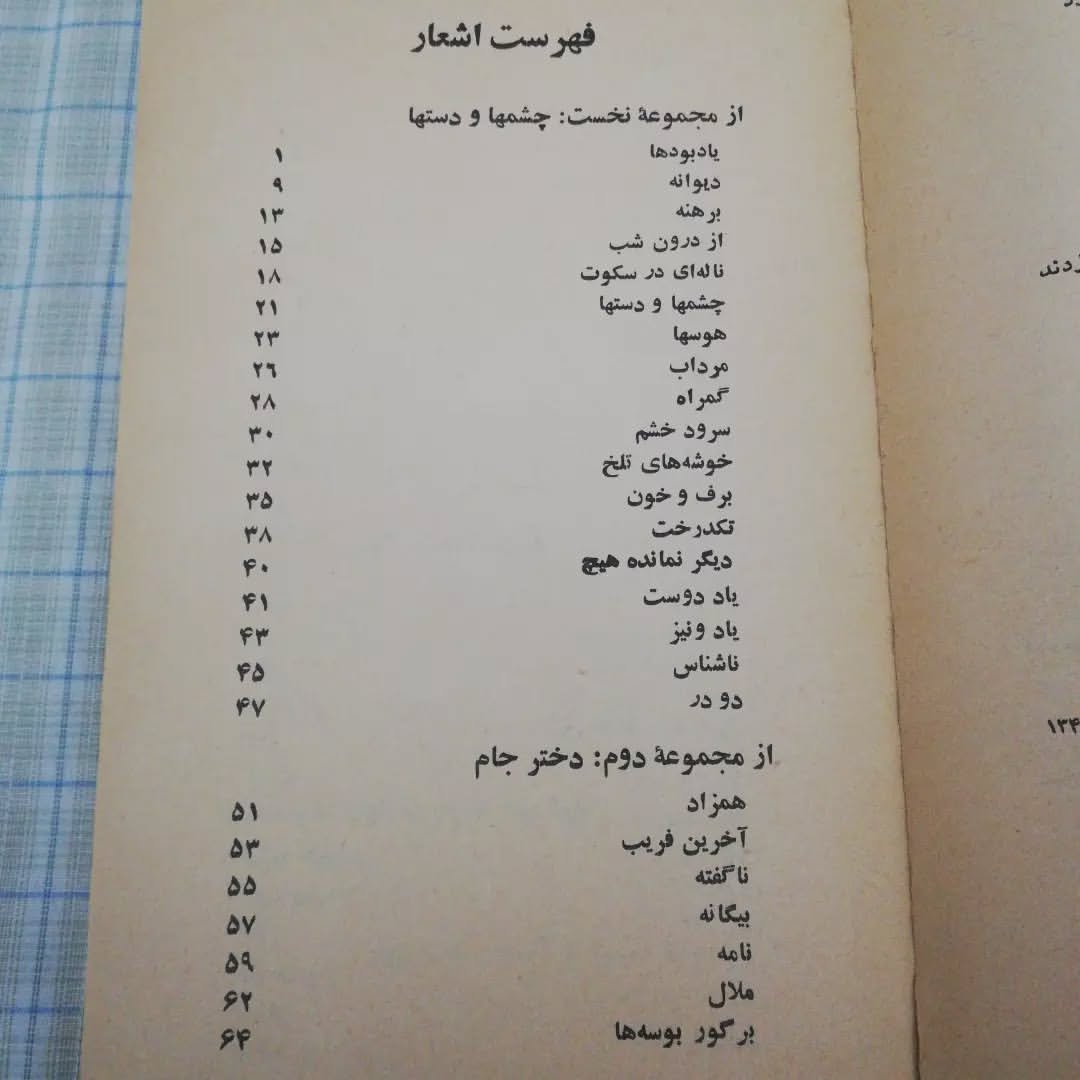 فهرست اشعار
از مجموعهٔ نخست: چشمها و دستها
یادبودها ۱
دیوانه ۹
برهنه ۱۳
از درون شب ۱۵
ناله‌ای در سکوت ۱۸
چشمها و دستها ۲۱
هوسها ۲۳
مرداب ۲۶
گمراه ۲۸
سرود خشم ۳۰
خوشه‌های تلخ ۳۲
برف و خون ۳۵
تکدرخت ۳۸
دیگر نمانده هیچ ۴۰
یاد دوست ۴۱
یاد ونیز ۴۳
ناشناس ۴۵
دو در ۴۷
از مجموعهٔ دوم: دختر جام
همزاد ۵۱
آخرین فریب ۵۳
ناگفته ۵۵
بیگانه ۵۷
نامه ۵۹
ملال ۶۲
بر گور بوسه‌ها ۶۴